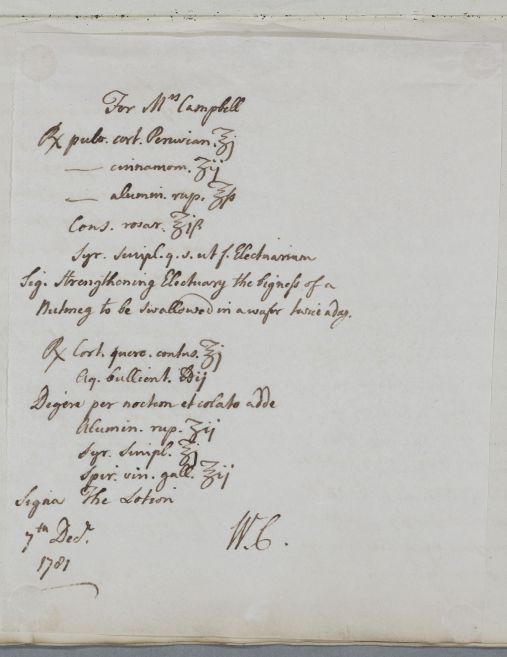 For Mrs Campbell
℞ pulv. cort. Peruvian. ℥j
— cinnamom. ʒij
— alumin. rup. ʒſs
Cons. rosar. ℥iſs
Syr. simpl. q. s. ut f. Electuarium
Sig. Strengthening Electuary the bigness of a
Nutmeg to be swallowed in a wafer twice a day.
℞ Cort. querc. contus. ℥j
Aq. bullient. ℔ij
Digere per noctem et colato adde
Alumin. rup. ʒij
Syr. Simpl. ℥j
Spir. vin. gall. ℥ij
Signa The Lotion
7th Decr.
W.C.
1781